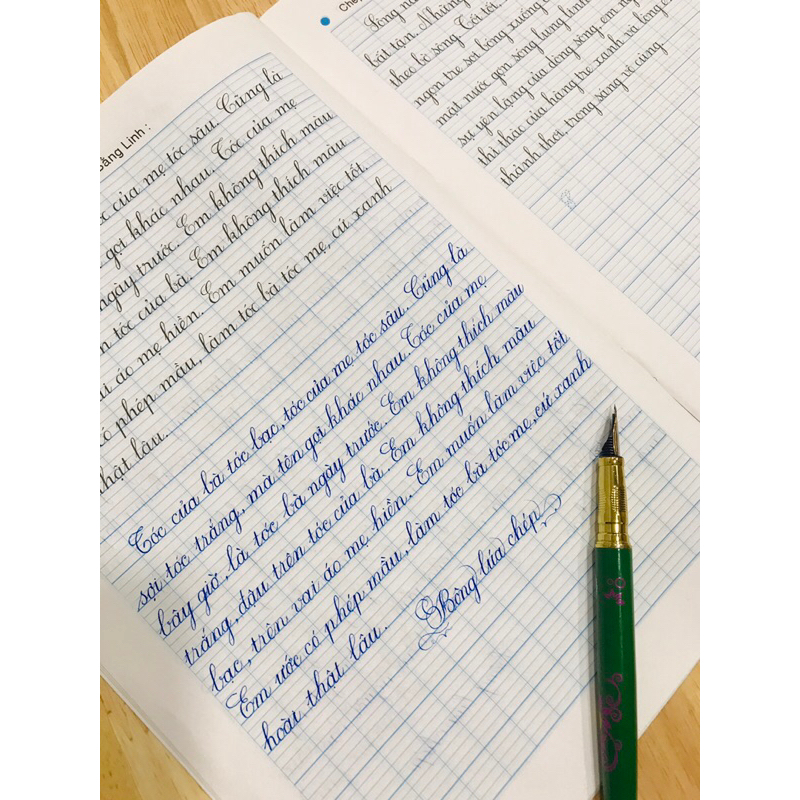 Linh :
của mẹ tóc sâu. Cũng là
gọi khác nhau. Tóc của mẹ
ngày trước. Em không thích màu
tóc của bà. Em không thích màu
áo mẹ hiền. Em muốn làm việc tốt.
có phép mầu, làm tóc bà tóc mẹ, cứ xanh
thật lâu.
Tóc của bà tóc bạc, tóc của mẹ tóc sâu. Cũng là
sợi tóc trắng, mà tên gọi khác nhau. Tóc của mẹ
bây giờ, là tóc bà ngày trước. Em không thích màu
trắng, đậu trên tóc của bà. Em không thích màu
bạc, trên vai áo mẹ hiền. Em muốn làm việc tốt.
Em ước có phép mầu, làm tóc bà tóc mẹ, cứ xanh
hoài thật lâu.
Bông lúa chép
Sông
bất tận. Những
theo bờ sông. Tối tối,
ngọn tre soi bóng xuống
mặt nước gợn sóng lung linh
sự yên lặng của dòng sông, em
thì thào của hàng tre xanh và lòng
thảnh thơi, trong sáng vô cùng